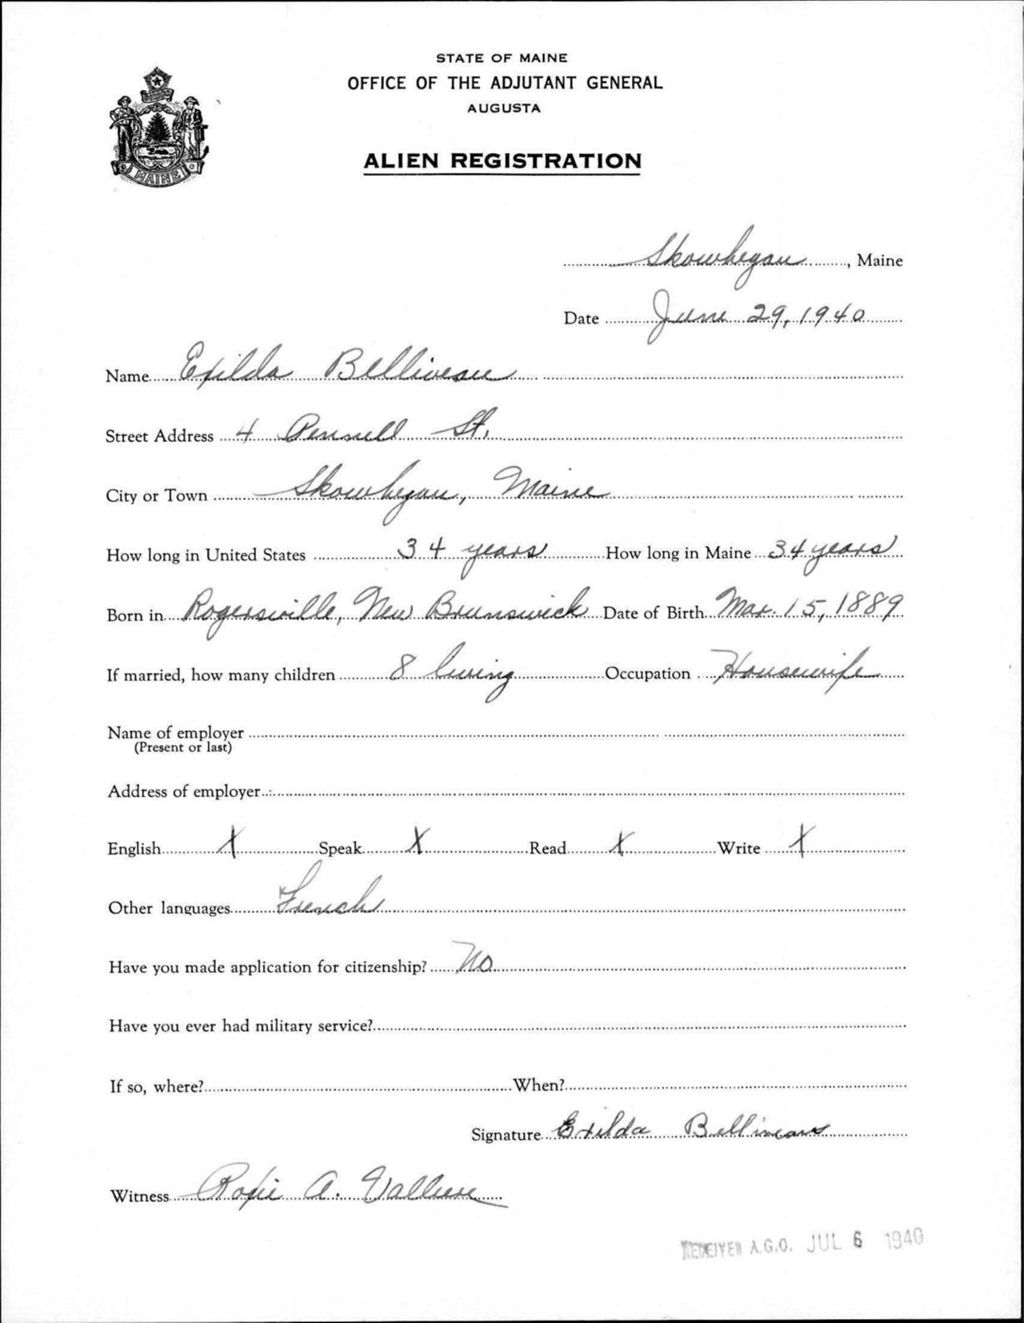 STATE OF MAINE
OFFICE OF THE ADJUTANT GENERAL
AUGUSTA
ALIEN REGISTRATION
MAINE
Skowhegan, Maine
Date June 29, 1940
Name Exilda Belliveau
Street Address 4 Pennell St.
City or Town Skowhegan, Maine
How long in United States 34 years How long in Maine 34 years
Born in Rogersville, New Brunswick Date of Birth Mar. 15, 1889
If married, how many children 8 living Occupation Housewife
Name of employer
(Present or last)
Address of employer
English X Speak X Read X Write X
Other languages French
Have you made application for citizenship? No
Have you ever had military service?
If so, where? When?
Signature Exilda Belliveau
Witness Roxie A. Valliere
RECEIVED A.G.O. JUL 6 1940